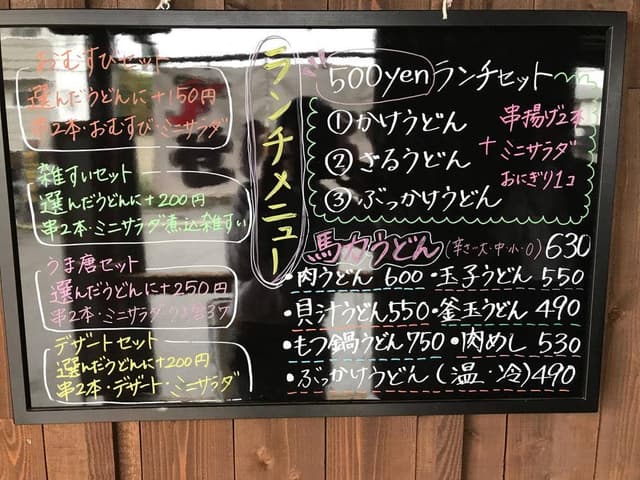 ランチメニュー
おむすびセット
選んだうどんに+150円
串2本・おむすび・ミニサラダ
雑すいセット
選んだうどんに+200円
串2本・ミニサラダ煮込雑すい
うま唐セット
選んだうどんに+250円
串2本・ミニサラダ
デザートセット
選んだうどんに+200円
串2本・デザート・ミニサラダ
500yenランチセット
①かけうどん
②ざるうどん
③ぶっかけうどん
+
串揚げ2本
ミニサラダ
おにぎり1コ
馬力うどん(辛さー大・中・小・0) 630
・肉うどん 600・玉子うどん 550
・貝汁うどん550・釜玉うどん 490
・もつ鍋うどん750・肉めし 530
・ぶっかけうどん(温・冷)490